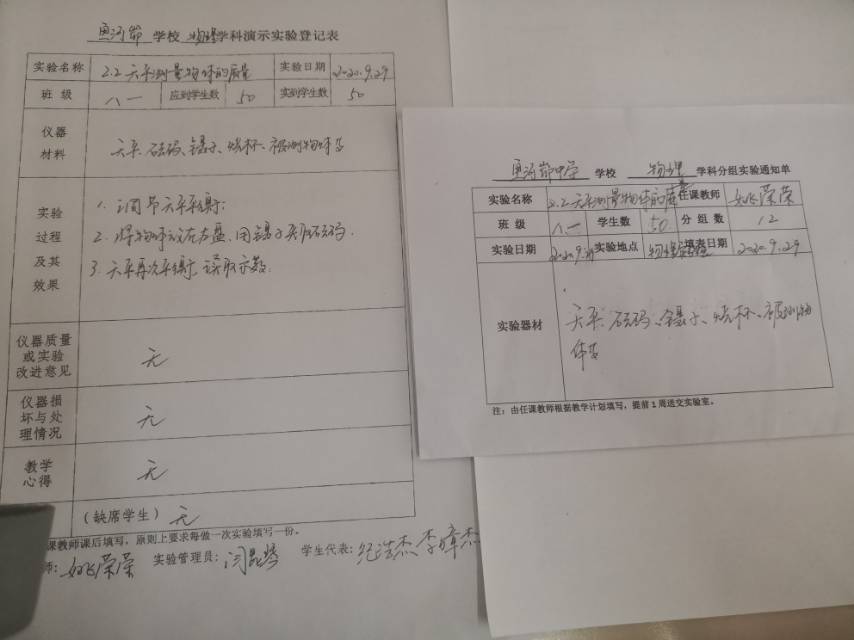 鱼河峁 学校 物理学科演示实验登记表
实验名称 2.2天平测量物体的质量 实验日期 2020.9.29
班 级 八一 应到学生数 50 实到学生数 50
仪器材料 天平、砝码、镊子、烧杯、被测物体等
实验过程及其效果
1. 调节天平平衡;
2. 将物体放在左盘、用镊子夹取砝码.
3. 天平再次平衡,读取示数.
仪器质量或实验改进意见 无
仪器损坏与处理情况 无
教学心得 无
(缺席学生) 无
课教师课后填写,原则上要求每做一次实验填写一份。
师: 姚荣荣 实验管理员: 学生代表: 纪浩杰
鱼河峁中学 学校 物理 学科分组实验通知单
实验名称 2.2天平测量物体的质量 任课教师 姚荣荣
班 级 八一 学生数 50 分组数 12
实验日期 实验地点 物理实验室 填表日期 2020.9.29
实验器材 天平、砝码、镊子、烧杯、被测物
体等
注:由任课教师根据教学计划填写,提前1周送交实验室。